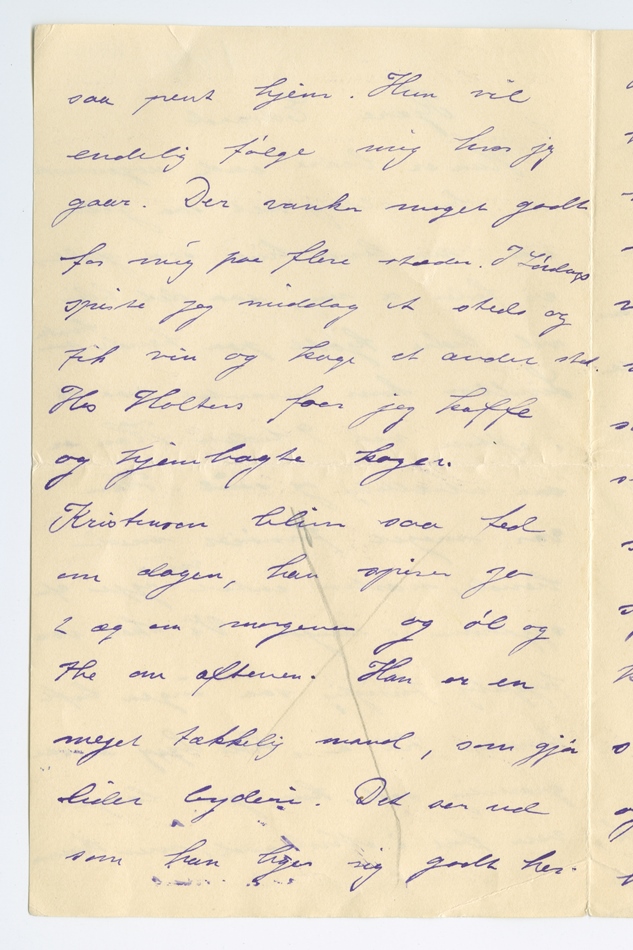 saa pent hjem. Hun vil
endelig følge mig hvor jeg
gaar. Der vanker meget godt
for mig paa flere steder. I Lørdags
spiste jeg middag et steds og
fik vin og kage et andet sted.
Hos Holters faar jeg kaffe
og hjembagte kager.
Kristensen bliver saa fed
om dagen, han spiser jo
2 æg om morgenen og øl og
the om aftenen. Han er en
meget tækkelig mand, som gjør
lidet byderi. Det ser ud
som han liger sig godt her.